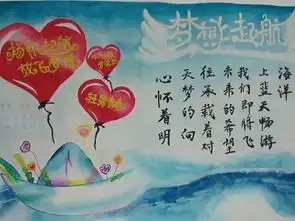 梦想起航
扬帆起航
放飞梦想
心怀着明
天梦的向
往承载着对
未来的希望
我们即将飞
上蓝天畅游
海洋